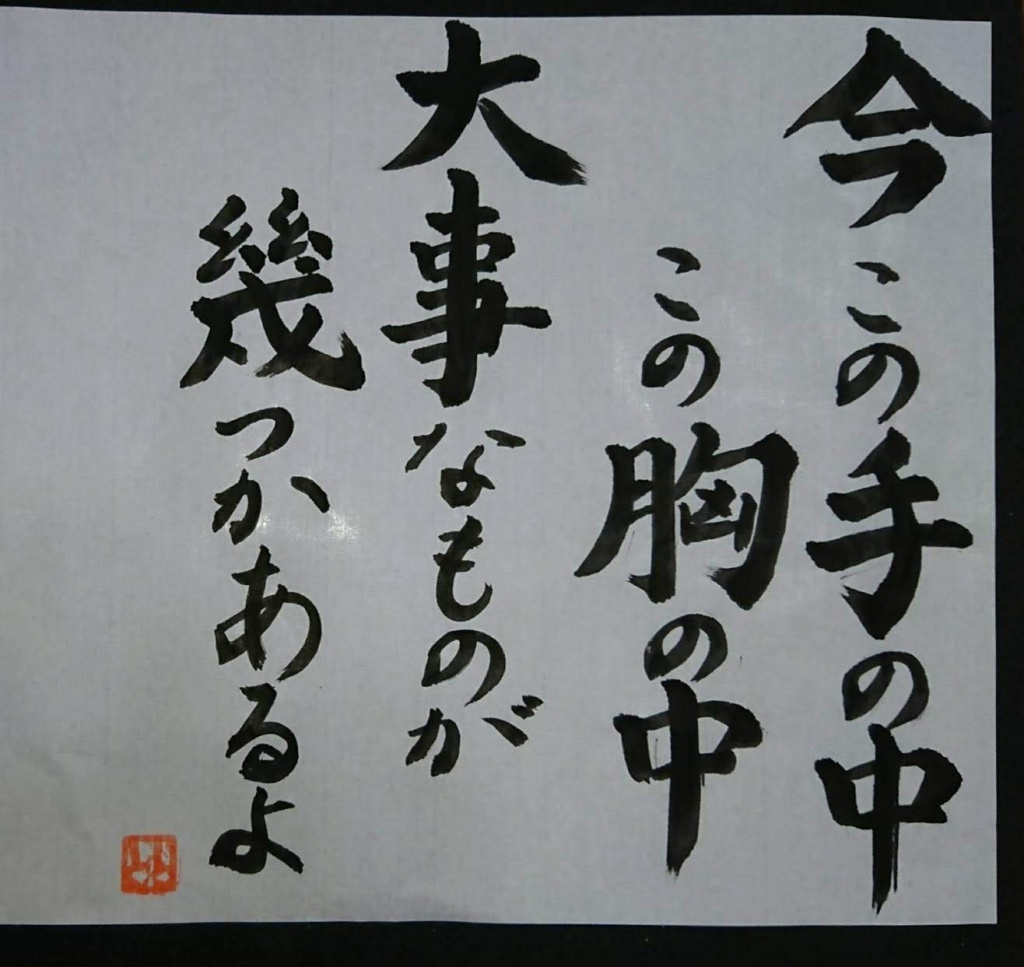 今この手の中
この胸の中
大事なものが
幾つかあるよ